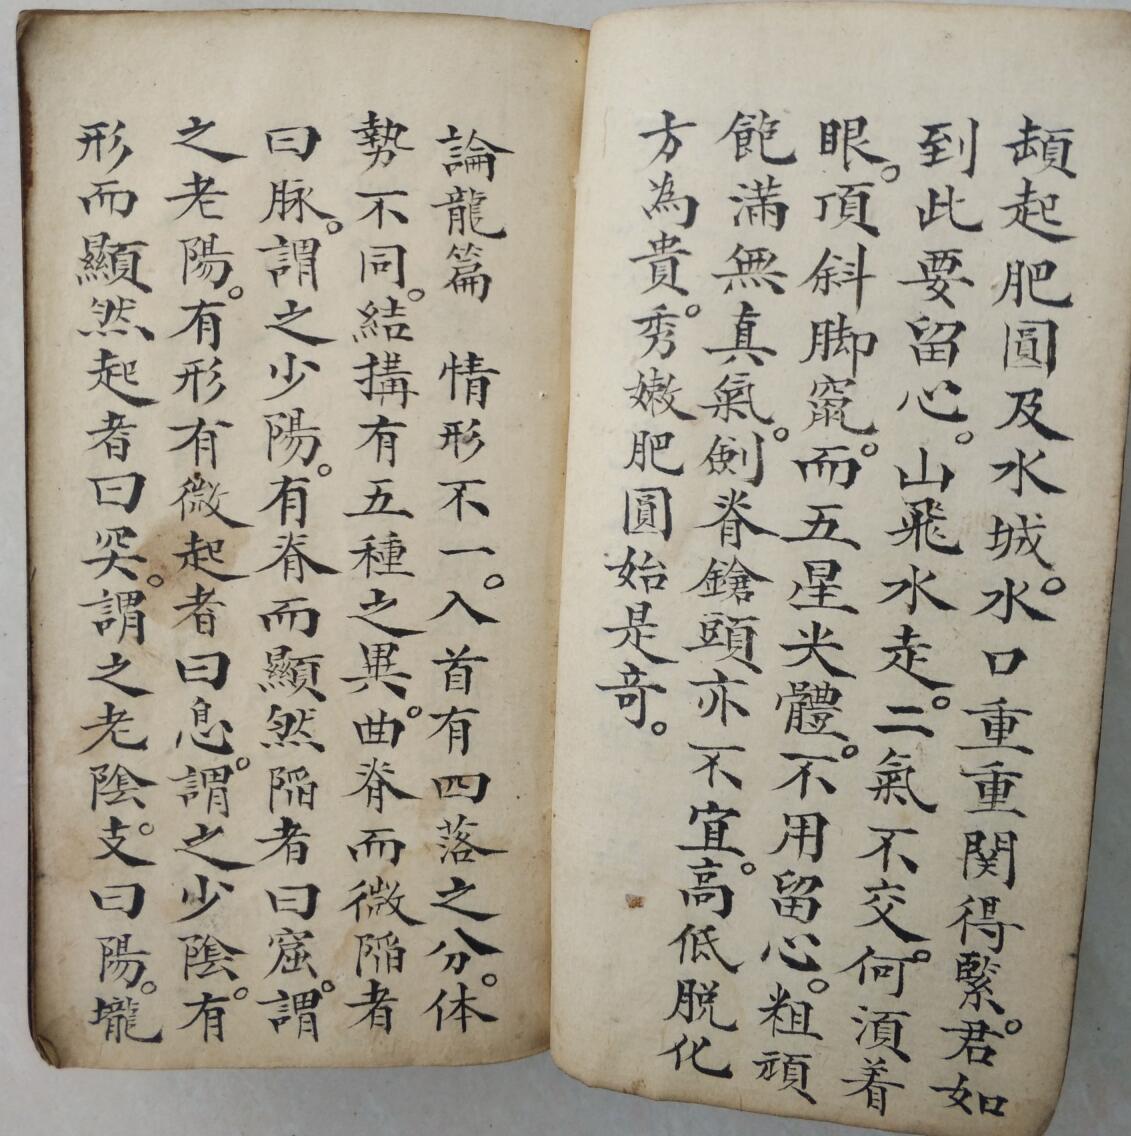 頔起肥圓及水城。水口重重関得緊。君如
到此要留心。山飛水走。二氣不交。何湏着
眼。頂斜脚竄。而五星尖體。不用留心。粗頑
飽滿無真氣。劍脊鎗頭亦不宜。高低脱化
方為貴。秀嫩肥圓始是奇。
論龍篇 情形不一。入首有四落之分。体
勢不同。結搆有五種之異。曲脊而微陷者
曰脉。謂之少陽。有脊而顯然陷者曰窟。謂
之老陽。有形有微起者曰息。謂之少陰。有
形而顯然起者曰突。謂之老陰。支曰陽。壠